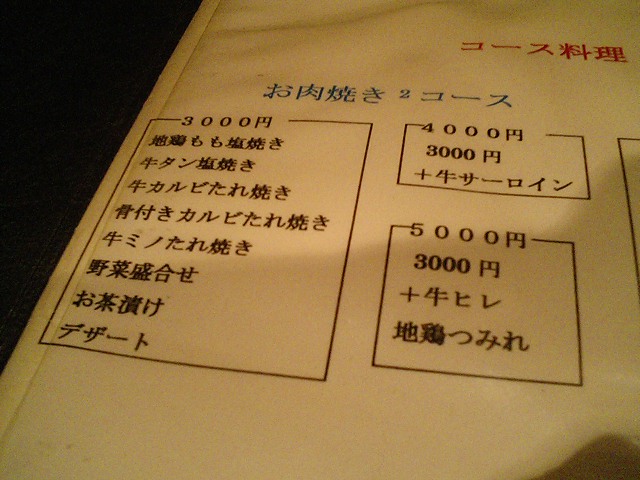 コース料理
お肉焼き2コース
3000円
地鶏もも塩焼き
牛タン塩焼き
牛カルビたれ焼き
骨付きカルビたれ焼き
牛ミノたれ焼き
野菜盛合せ
お茶漬け
デザート
4000円
3000円
+牛サーロイン
5000円
3000円
+牛ヒレ
地鶏つみれ